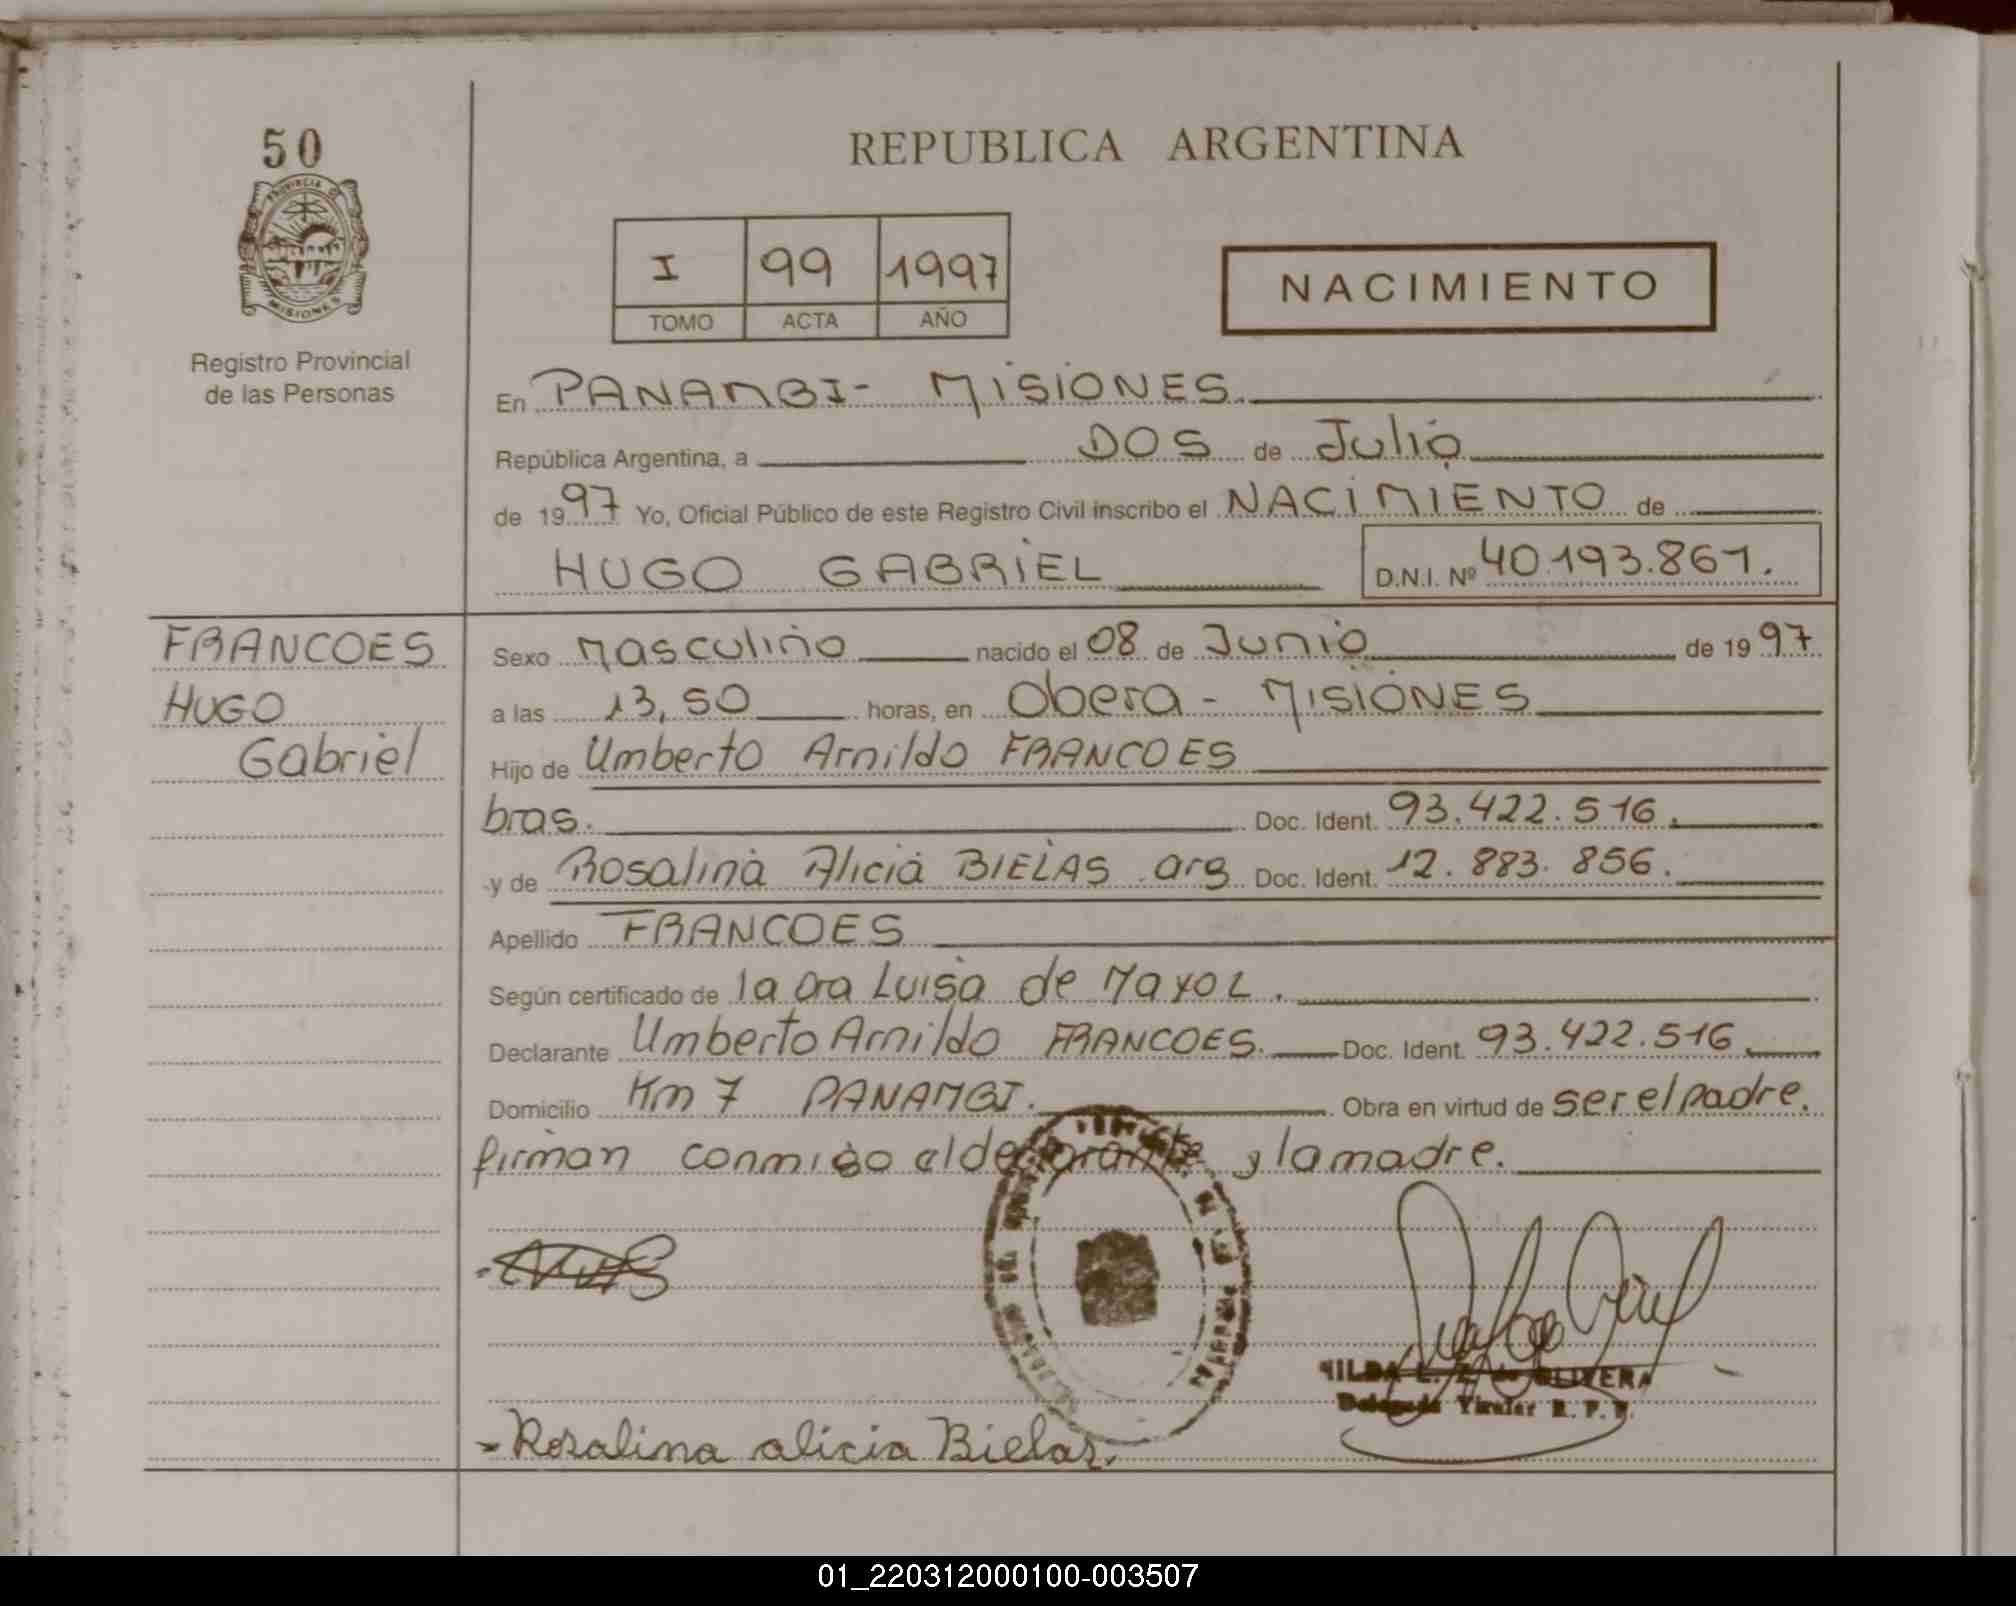 50
PROVINCIA DE
MISIONES
Registro Provincial
de las Personas
REPUBLICA ARGENTINA
I 99 1997
TOMO ACTA AÑO
NACIMIENTO
En PANAMBI- MISIONES.
República Argentina, a DOS de Julio
de 1997 Yo, Oficial Público de este Registro Civil inscribo el NACIMIENTO de
HUGO GABRIEL D.N.I. Nº 40.193.861.
FRANCOES
HUGO
Gabriel
Sexo Masculino nacido el 08 de Junio de 1997
a las 13,50 horas, en Obera - MISIONES
Hijo de Umberto Arnildo FRANCOES
bras. Doc. Ident. 93.422.516.
y de Rosalina Alicia BIELAS arg Doc. Ident. 12.883.856.
Apellido FRANCOES
Según certificado de la Dra Luisa de Mayol.
Declarante Umberto Arnildo FRANCOES. Doc. Ident. 93.422.516.
Domicilio Km 7 PANAMBI. Obra en virtud de ser el padre.
firman conmigo el declarante y la madre.
HILDA L. de OLIVERA
Delegada Titular R. P. P.
- Rosalina alicia Bielas.
01_220312000100-003507